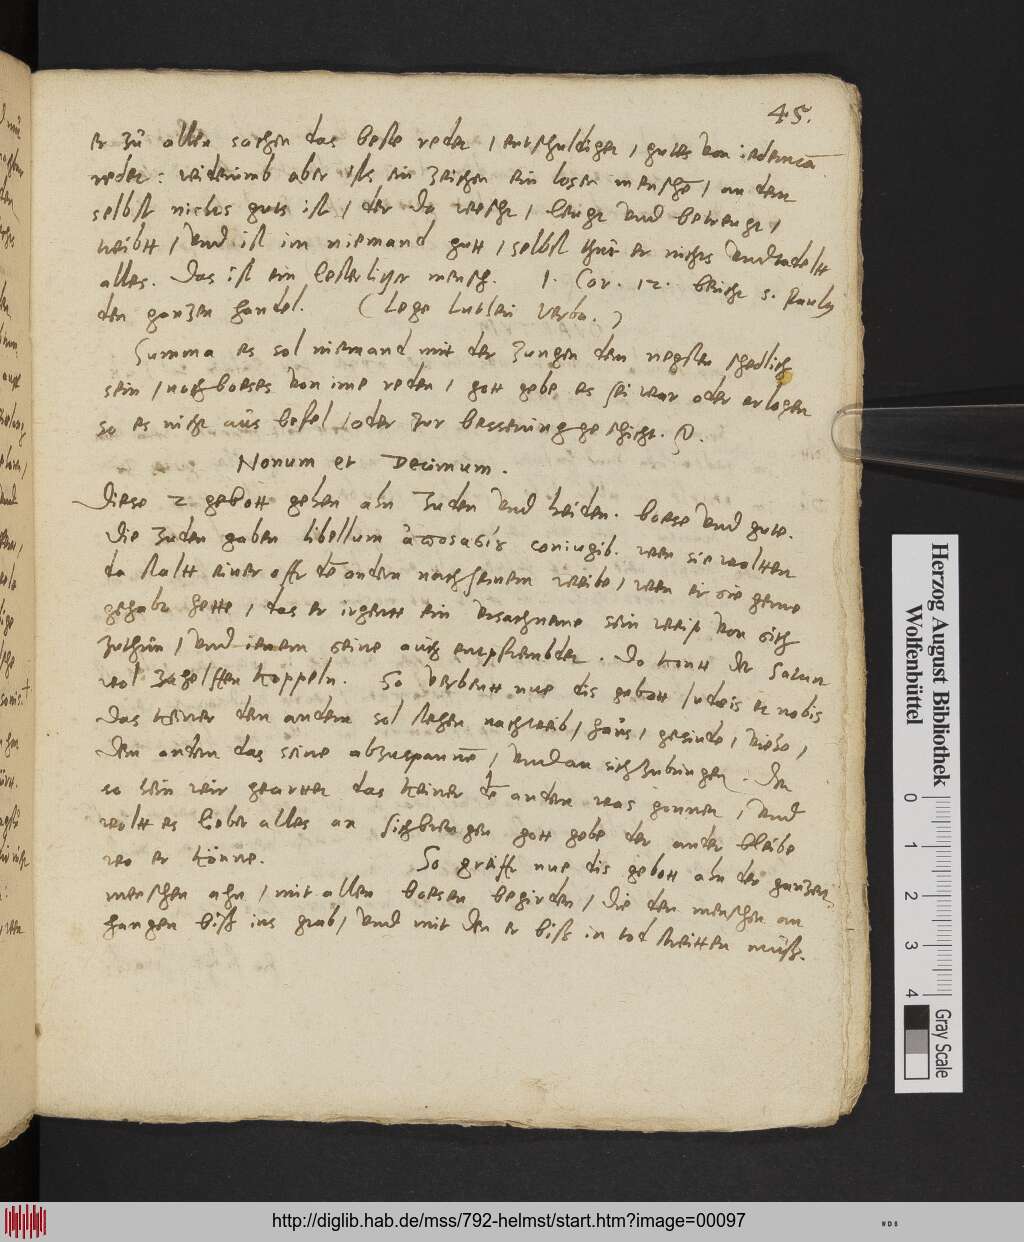 45.
er zu allen sachen das beste redet / entschuldiget / gutes von iederman
redet: widerumb aber ists ein zeichen ein losen menschē / an dem
selbst nichts guts ist / der da wescht / leugt vnd betreugt /
treibtt / vnd ist im niemand gutt / selbst thut er nichts vnd tadeltt
alles. Das ist ein lesterlicher mensch. 1. Cor. 12. S. Paulus
den ganzen handel. (Lege Lutheri verba.)
Summa es sol niemand mit der zungen dem negsten schedlich
sein / noch boeses von ime reden / gott gebe es sei war oder erlogen
so es nicht aus befel / oder zur besserung geschicht.
Nonum et Decimum.
Diese 2 gebott gehen ahn Juden vnd heiden. boese vnd gute.
Die Juden gaben libellum coniugib. wen sie woltten
da staltt einer offt dē andern nach seinem weibe / wen er sie gerne
gehabt hette / das er irgentt ein vrsach neme sein weip von sich
zuthun / vnd ienem seine auch entpfrembdet. Do kontt der Satan
wol helffen koppeln. So verbeutt nue dis gebott Iudeis et nobis
das keiner dem andern sol stehen nach weib / haus / gesinde / viehe /
dem andern das seine abzuspannē / vnd an sich zubringen. Den
so sein wir geartett das keiner dē andern was gonnet / vnd
woltt es lieber alles an sich brengen gott gebe der ander bleibe
wo er könne. So greifft nue dis gebott ahn den ganzen
menschen ahn / mit allen boesen begirden / die dem menschen an
hangen biss ins grab / vnd mit den er biss in tod streitten muss.
Herzog August Bibliothek
Wolfenbüttel
0 1 2 3 4
Gray Scale
http://diglib.hab.de/mss/792-helmst/start.htm?image=00097